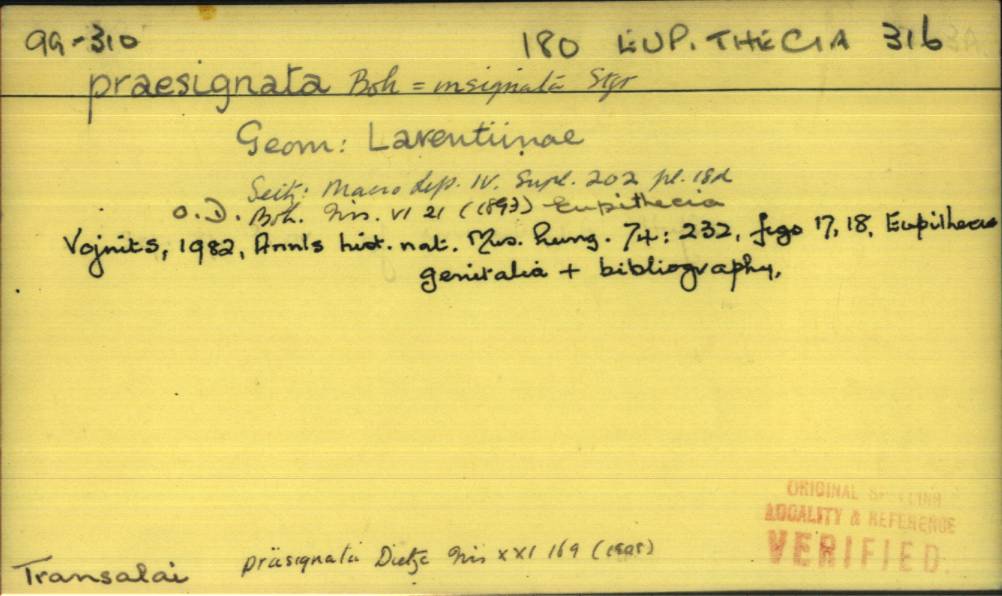 99-310 180 EUPITHECIA 316
praesignata Boh = insignata Stgr
Geom: Larentiinae
Seitz: Macrolep. IV. Supl. 202 pl. 18d
O.D. Boh. Iris. VI 21 (1893) Eupithecia
Vojnits, 1982, Annls hist. nat. Mus. hung. 74: 232, figs 17, 18, Eupithecia
genitalia + bibliography,
ORIGINAL SPELLING
LOCALITY & REFERENCE
VERIFIED.
präsignata Dietze Iris XXI 169 (1908)
Transalai